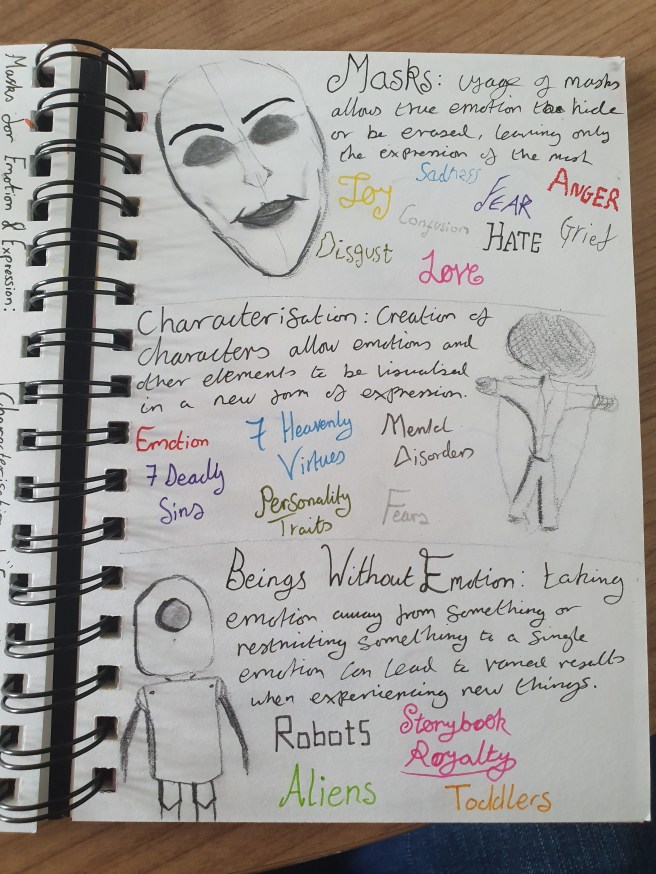 Masks: usage of masks
allows true emotion to hide
or be erased, leaving only
the expression of the mask
Joy
Sadness
FEAR
ANGER
Confusion
Disgust
HATE
Grief
Love
Characterisation: Creation of
characters allow emotions and
other elements to be visualised
in a new form of expression.
Emotion
7 Heavenly
Virtues
Mental
Disorders
7 Deadly
Sins
Personality
Traits
Fears
Beings Without Emotion: taking
emotion away from something or
restricting something to a single
emotion can lead to varied results
when experiencing new things.
Robots
Storybook
Royalty
Aliens
Toddlers
Masks for Emotion & Expression: